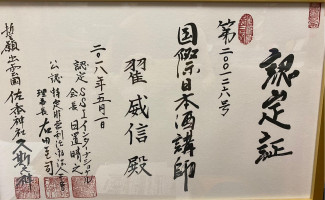 認定証
第二〇一三六号
国際日本酒講師
翟威信殿
二〇一八年五月一日
認定 SSIインターナショナル
会長 日置晴之
公認 特定非営利活動法人
理事長 右田圭司
出雲國 佐香神社